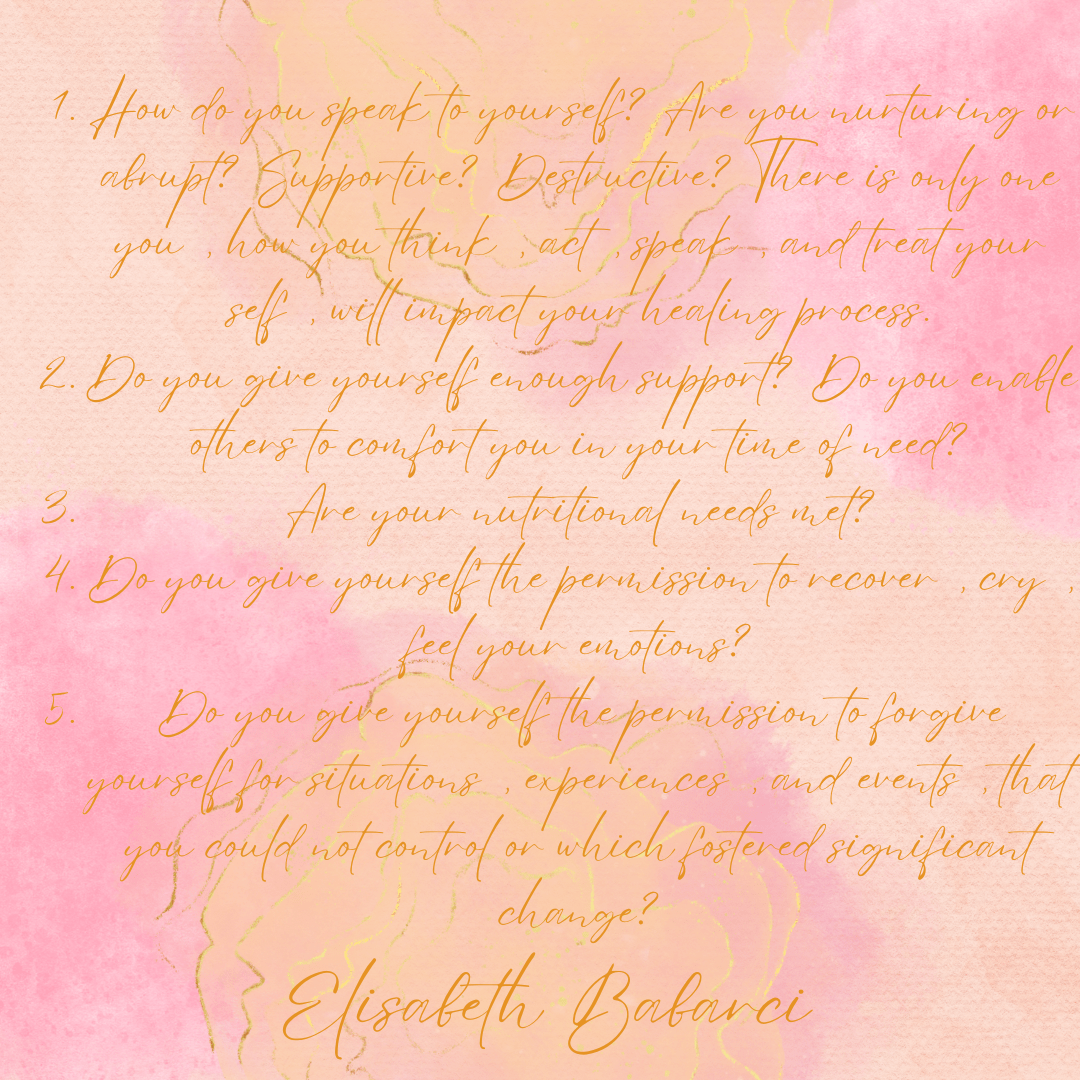 1. How do you speak to yourself? Are you nurturing or
abrupt? Supportive? Destructive? There is only one
you , how you think , act , speak , and treat your
self , will impact your healing process.
2. Do you give yourself enough support? Do you enable
others to comfort you in your time of need?
3. Are your nutritional needs met?
4. Do you give yourself the permission to recover , cry ,
feel your emotions?
5. Do you give yourself the permission to forgive
yourself for situations , experiences , and events , that
you could not control or which fostered significant
change?
Elisabeth Babarci